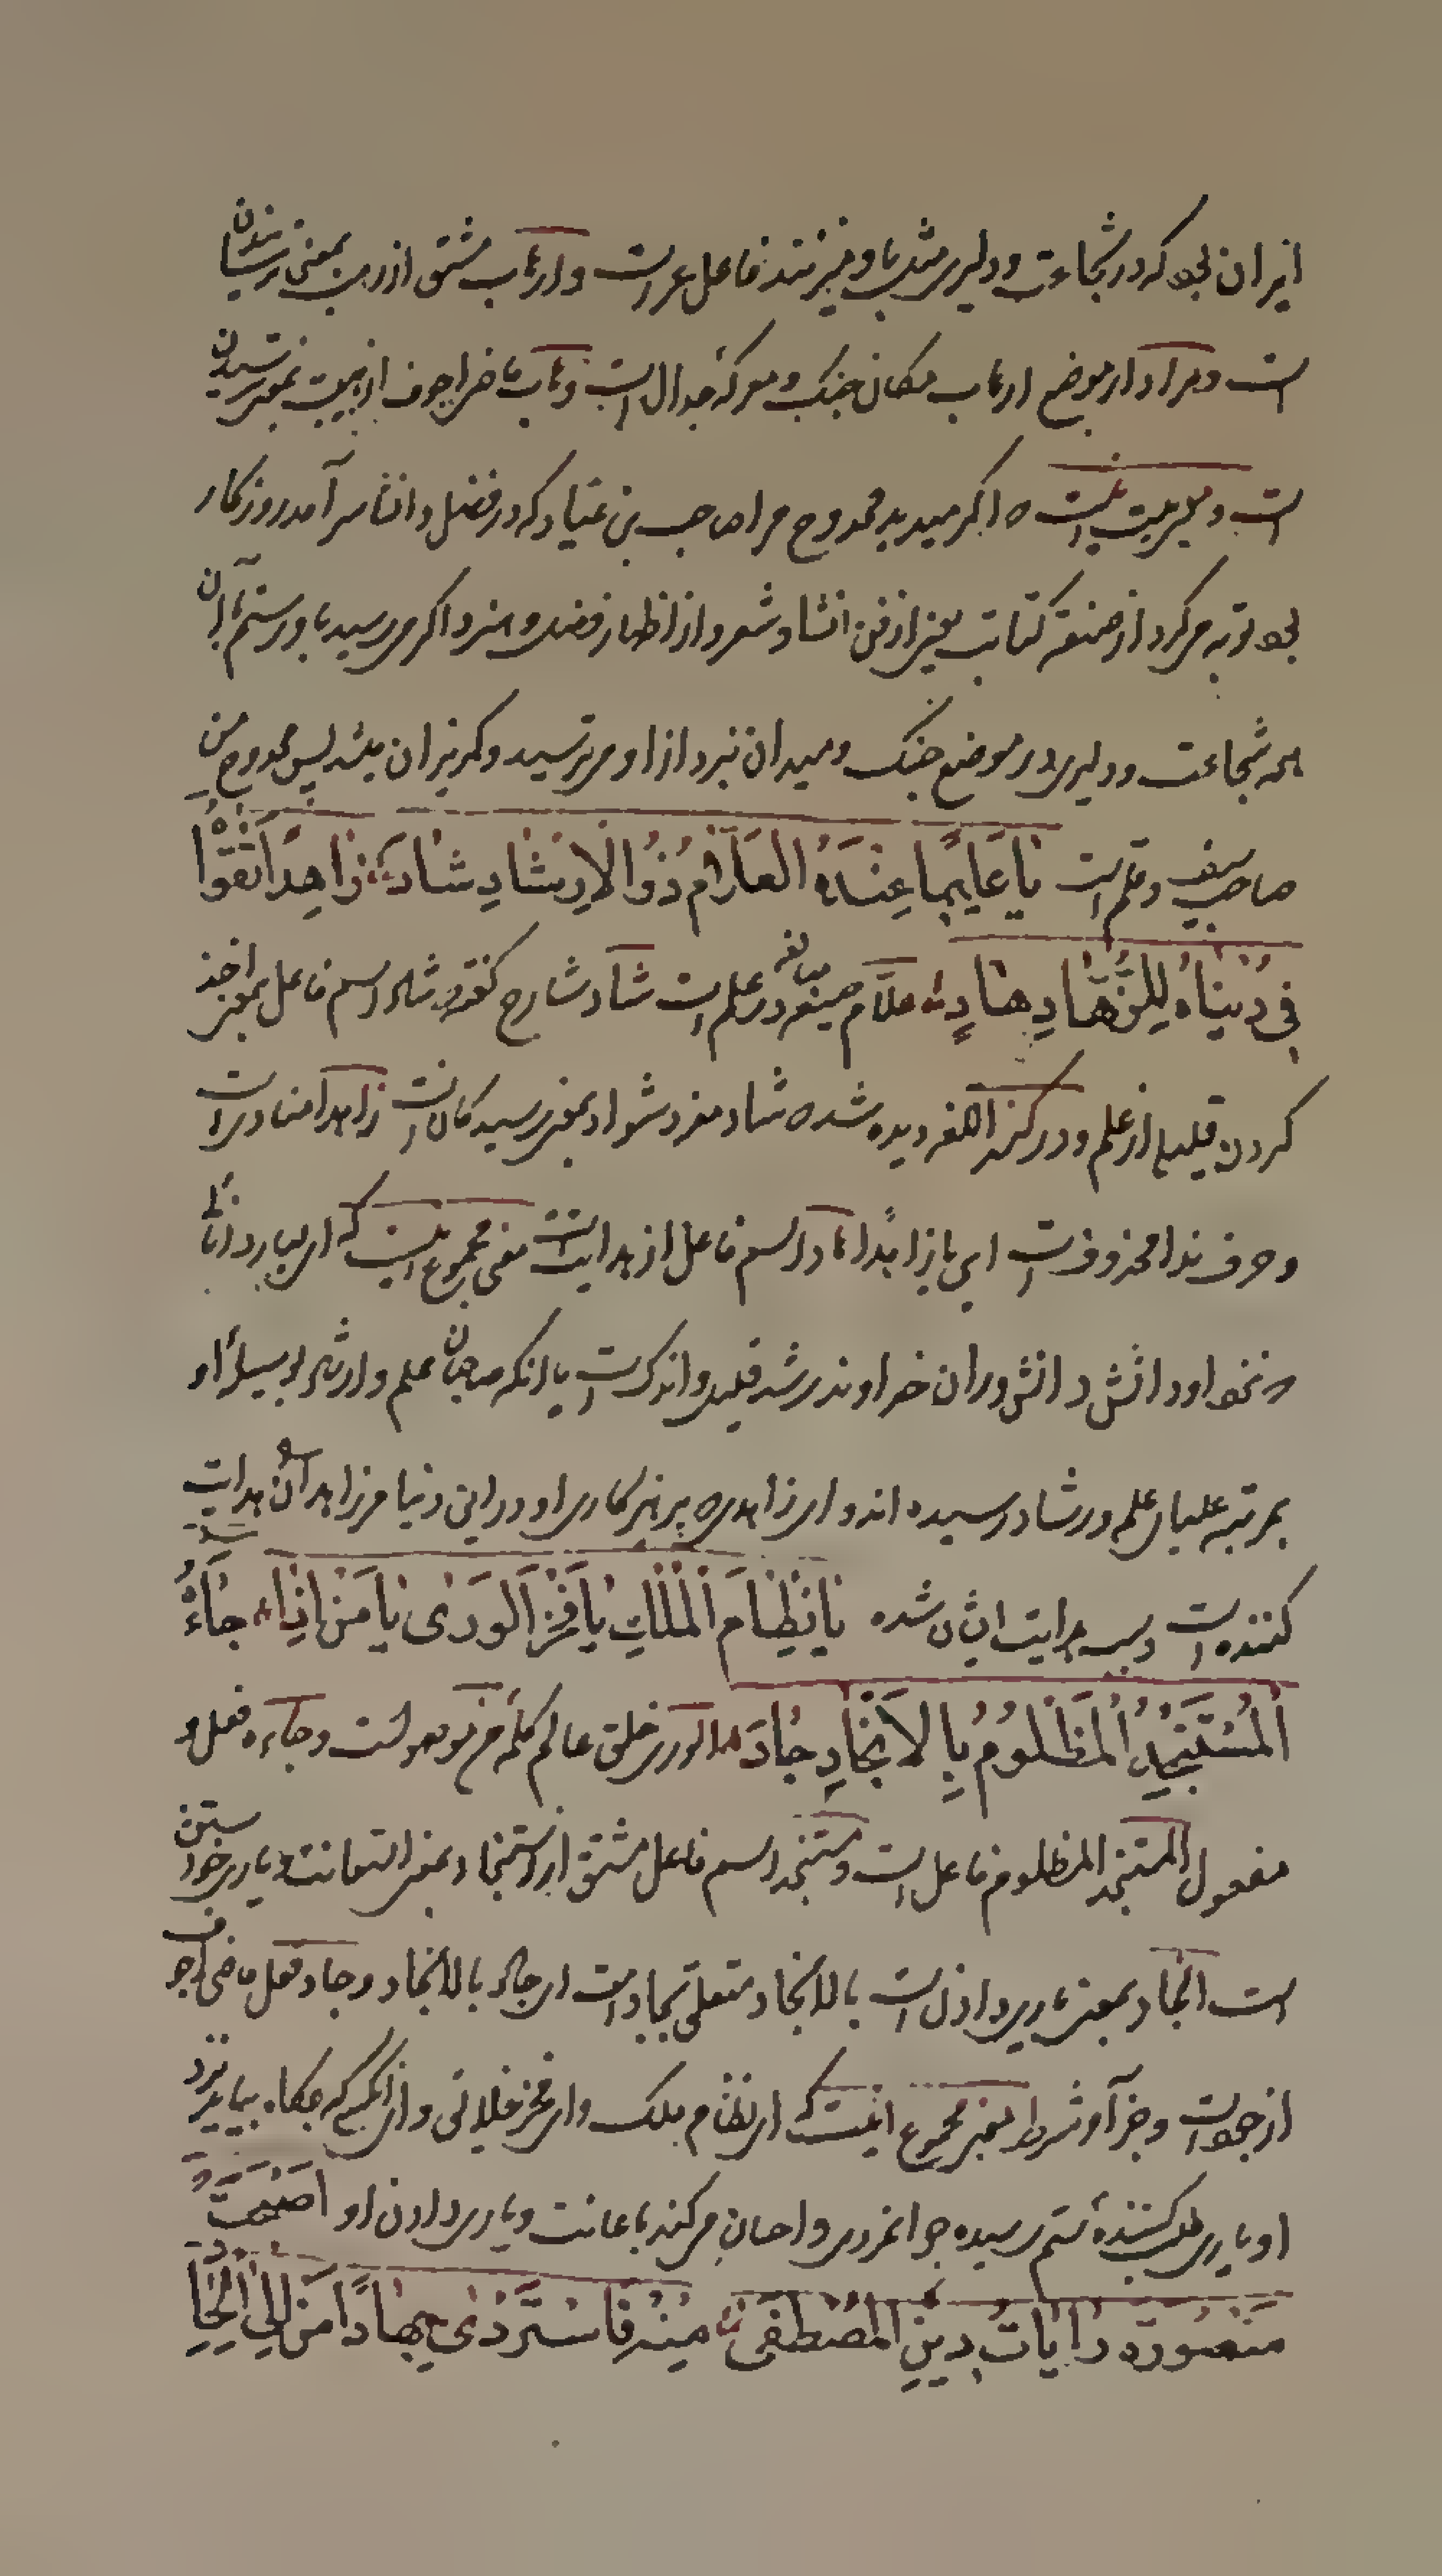 ایران بود که در شجاعت و دلیری مثل باو میزنند فاعل عراست و ارهاب مشتق از رهب بمعنی ترسانیدن
است و مراد از موضع ارهاب مکان جنک و معرکهٔ جدال است و هاب ماضی اجوف از هیبت بمعنی ترسیدن
است و معنی بیت اینست که اکر میدید ممدوح مرا صاحب بن عباد که در فضل و انشا سرآمد روزکار
بود توبه میکرد از صنعة کتابت یعنی از فن انشا و شعر و از اظهار فضل و هنر و اکر میرسید باو رستم با آن
همه شجاعت و دلیری در موضع جنک و میدان نبرد از او میترسید و کریزان میشد پس ممدوح من
صاحب سیف و قلم است یا عالما عنه العلام ذو الارشاد شاد زاهدا تقواه
فی دنیاه للزهاد هاد علام صیغه مبالغه در علم است شاد شارح کفته شاد اسم فاعل بمعنی اخذ
کردن قلیلی از علم و در کنز اللغه دیده شده شاد مفرد شواد بمعنی رسید کانست زاهدا منادی است
و حرف ندا محذوفست ای یا زاهدا هاد اسم فاعل از هدایتست معنی مجموع اینست که ای بسیار دانائی
که نحو او دانش دانش وران خداوند رشد قلیل و اندکست یا آنکه صاحبان علم و ارشاد بوسیلهٔ او
بمرتبه علیای علم و رشاد رسیده اند و ای زاهدی که پرهیزکاری او در این دنیا مر زاهدان را هدایت
کننده است و سبب هدایت ایشان شده یا نظام الملک یا فخر الوری یا من اذا جاءه
المستنجد المظلوم بالانجاد جاد الوری خلق عالم کلمهٔ من موصولست و جاءه فعل و
مفعول المستنجد المظلوم فاعل است و مستنجد اسم فاعل مشتق از استنجاد بمعنی استعانت و یاری خواستن
است انجاد بمعنی یاری دادن است بالانجاد متعلق بجاد است ای جاد بالانجاد و جاد فعل ماضی اجوف
از جود است و جزآء شرط معنی مجموع اینست که ای نظام ملک و ای فخر خلایق و ای آنکسی که هرکاه بیاید نزد
او یاری طلب کنندهٔ ستم رسیده جوانمردی و احسان میکند باعانت و یاری دادن او اضحت
منصورة رایات دین المصطفی منه فاستردی بها من الی الحا